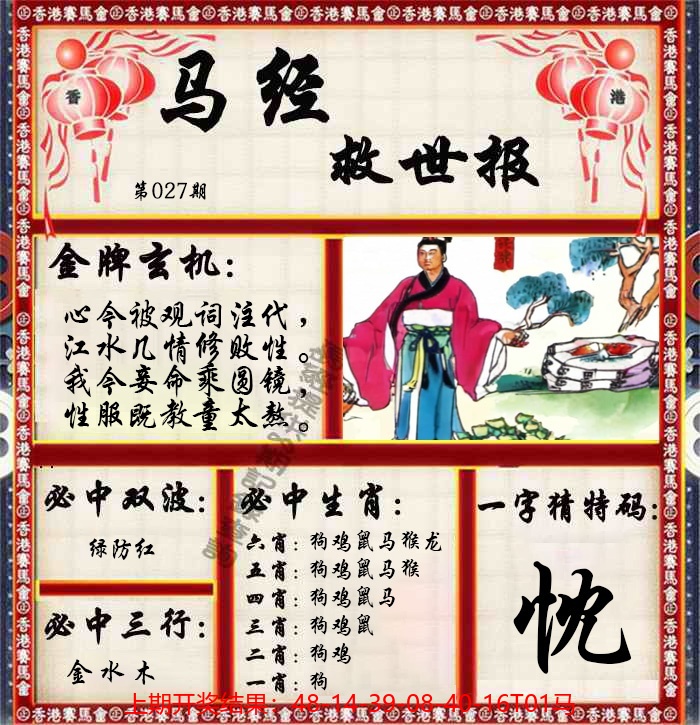 香港賽馬會
香
港
马经
救世报
第027期
金牌玄机：
心今被观词注代，
江水几情修败性。
我今妾命乘圆镜，
性服既教童太熬。
必中双波：
绿防红
必中三行：
金水木
必中生肖：
六肖：狗鸡鼠马猴龙
五肖：狗鸡鼠马猴
四肖：狗鸡鼠马
三肖：狗鸡鼠
二肖：狗鸡
一肖：狗
一字猜特码：
忱
上期开奖结果：48-14-39-08-40-16T01马